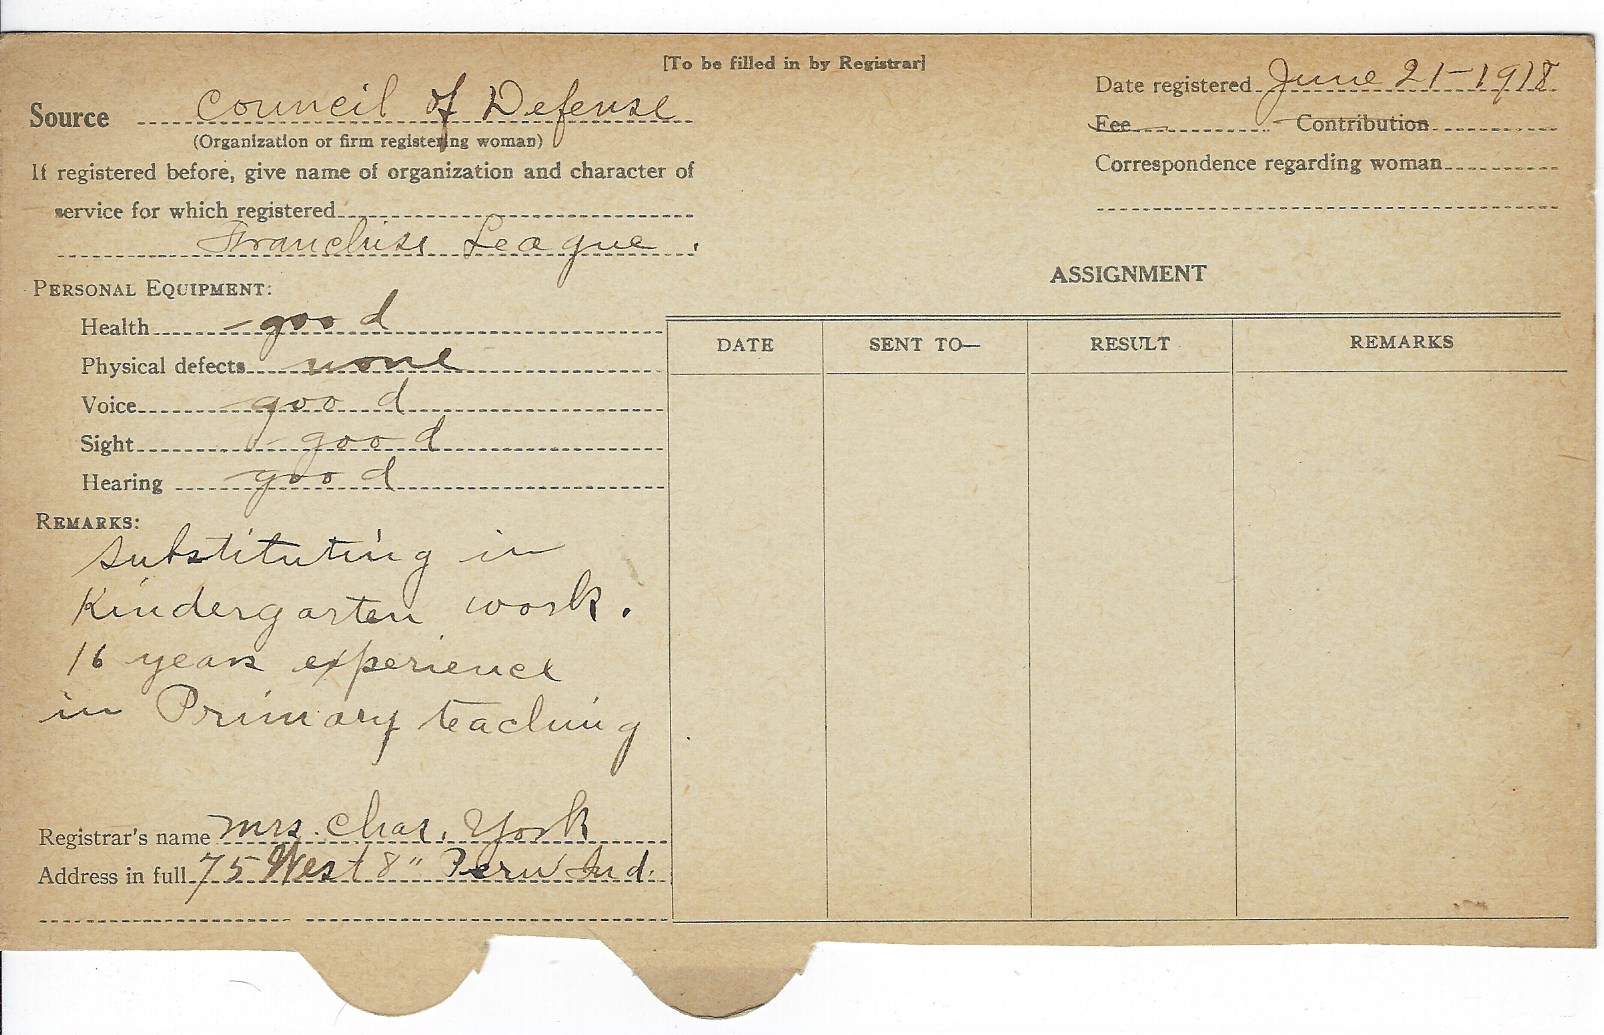 [To be filled in by Registrar]
Source Council of Defense
(Organization or firm registering woman)
If registered before, give name of organization and character of
service for which registered
Franchise League.
PERSONAL EQUIPMENT:
Health good
Physical defects none
Voice good
Sight good
Hearing good
REMARKS:
Substituting in
Kindergarten work.
16 years experience
in Primary teaching
Registrar's name Mrs. Chas. York
Address in full 75 West 8" Peru Ind.
Date registered June 21-1918
Fee Contribution
Correspondence regarding woman
ASSIGNMENT
DATE SENT TO— RESULT REMARKS